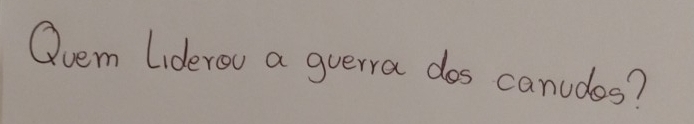 Quem Liderou a guerra dos canudos?